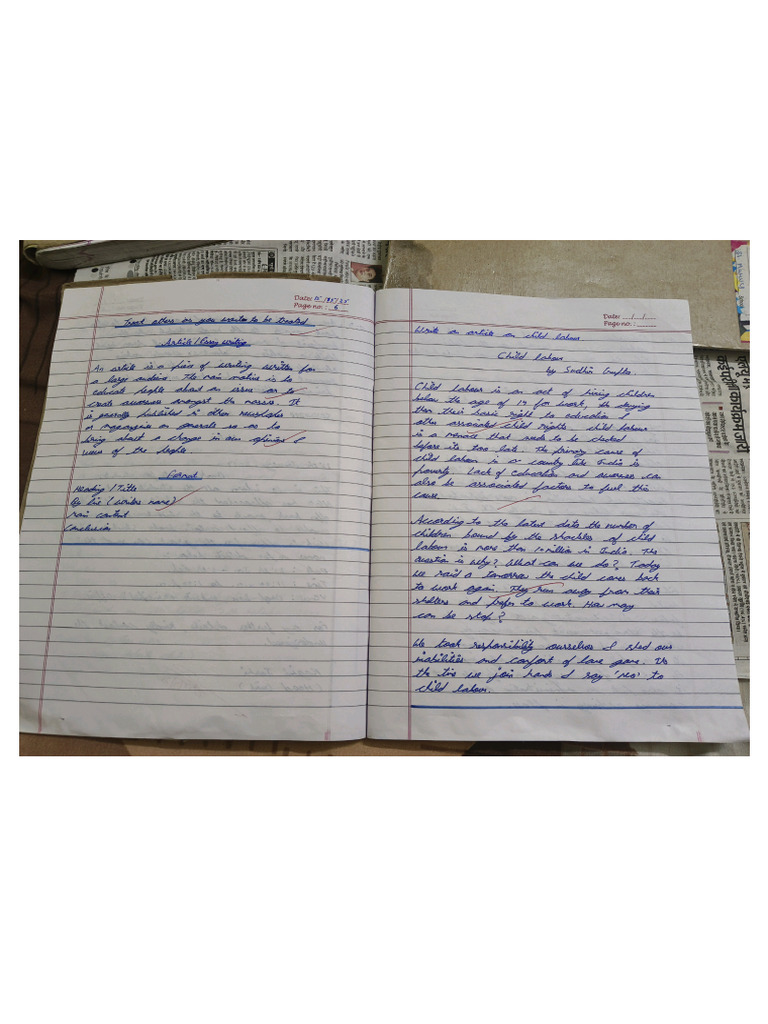 Date: 15/05/25
Page no.: 6
Treat others as you want to be treated
Article/Essay writing
An article is a piece of writing written for
a large audience. The main motive is to
educate people about an issue or to
create awareness amongst the masses. It
is generally published in other newspapers
or magazines or journals so as to
bring about a change in our opinion /
views of the people
Format
Heading / Title
By line (writers name)
Main content
Conclusion
Date: __/__/__
Page no.: ____
Write an article on child labour
Child labour
by Sudhir Gupta.
Child labour is an act of hiring children
below the age of 14 for work, the denying
them their basic right to education /
other associated child rights. child labour
is a menace that needs to be checked
before its too late. The primary cause of
child labour in a country like India is
poverty. Lack of education and awarense can
also be associated factors to fuel this
cause.
According to the latest data the number of
children bound by the shackles of child
labour is more than 10 million in India. The
question is why? What can we do? Today
we raid a tomorrow the child comes back
to work again. They run away from their
shelters and prefer to work. How may
can be stop?
We took responsibility ourselves / shed our
inabilities and comfort of
the time we join hands / say 'no' to
child labour.